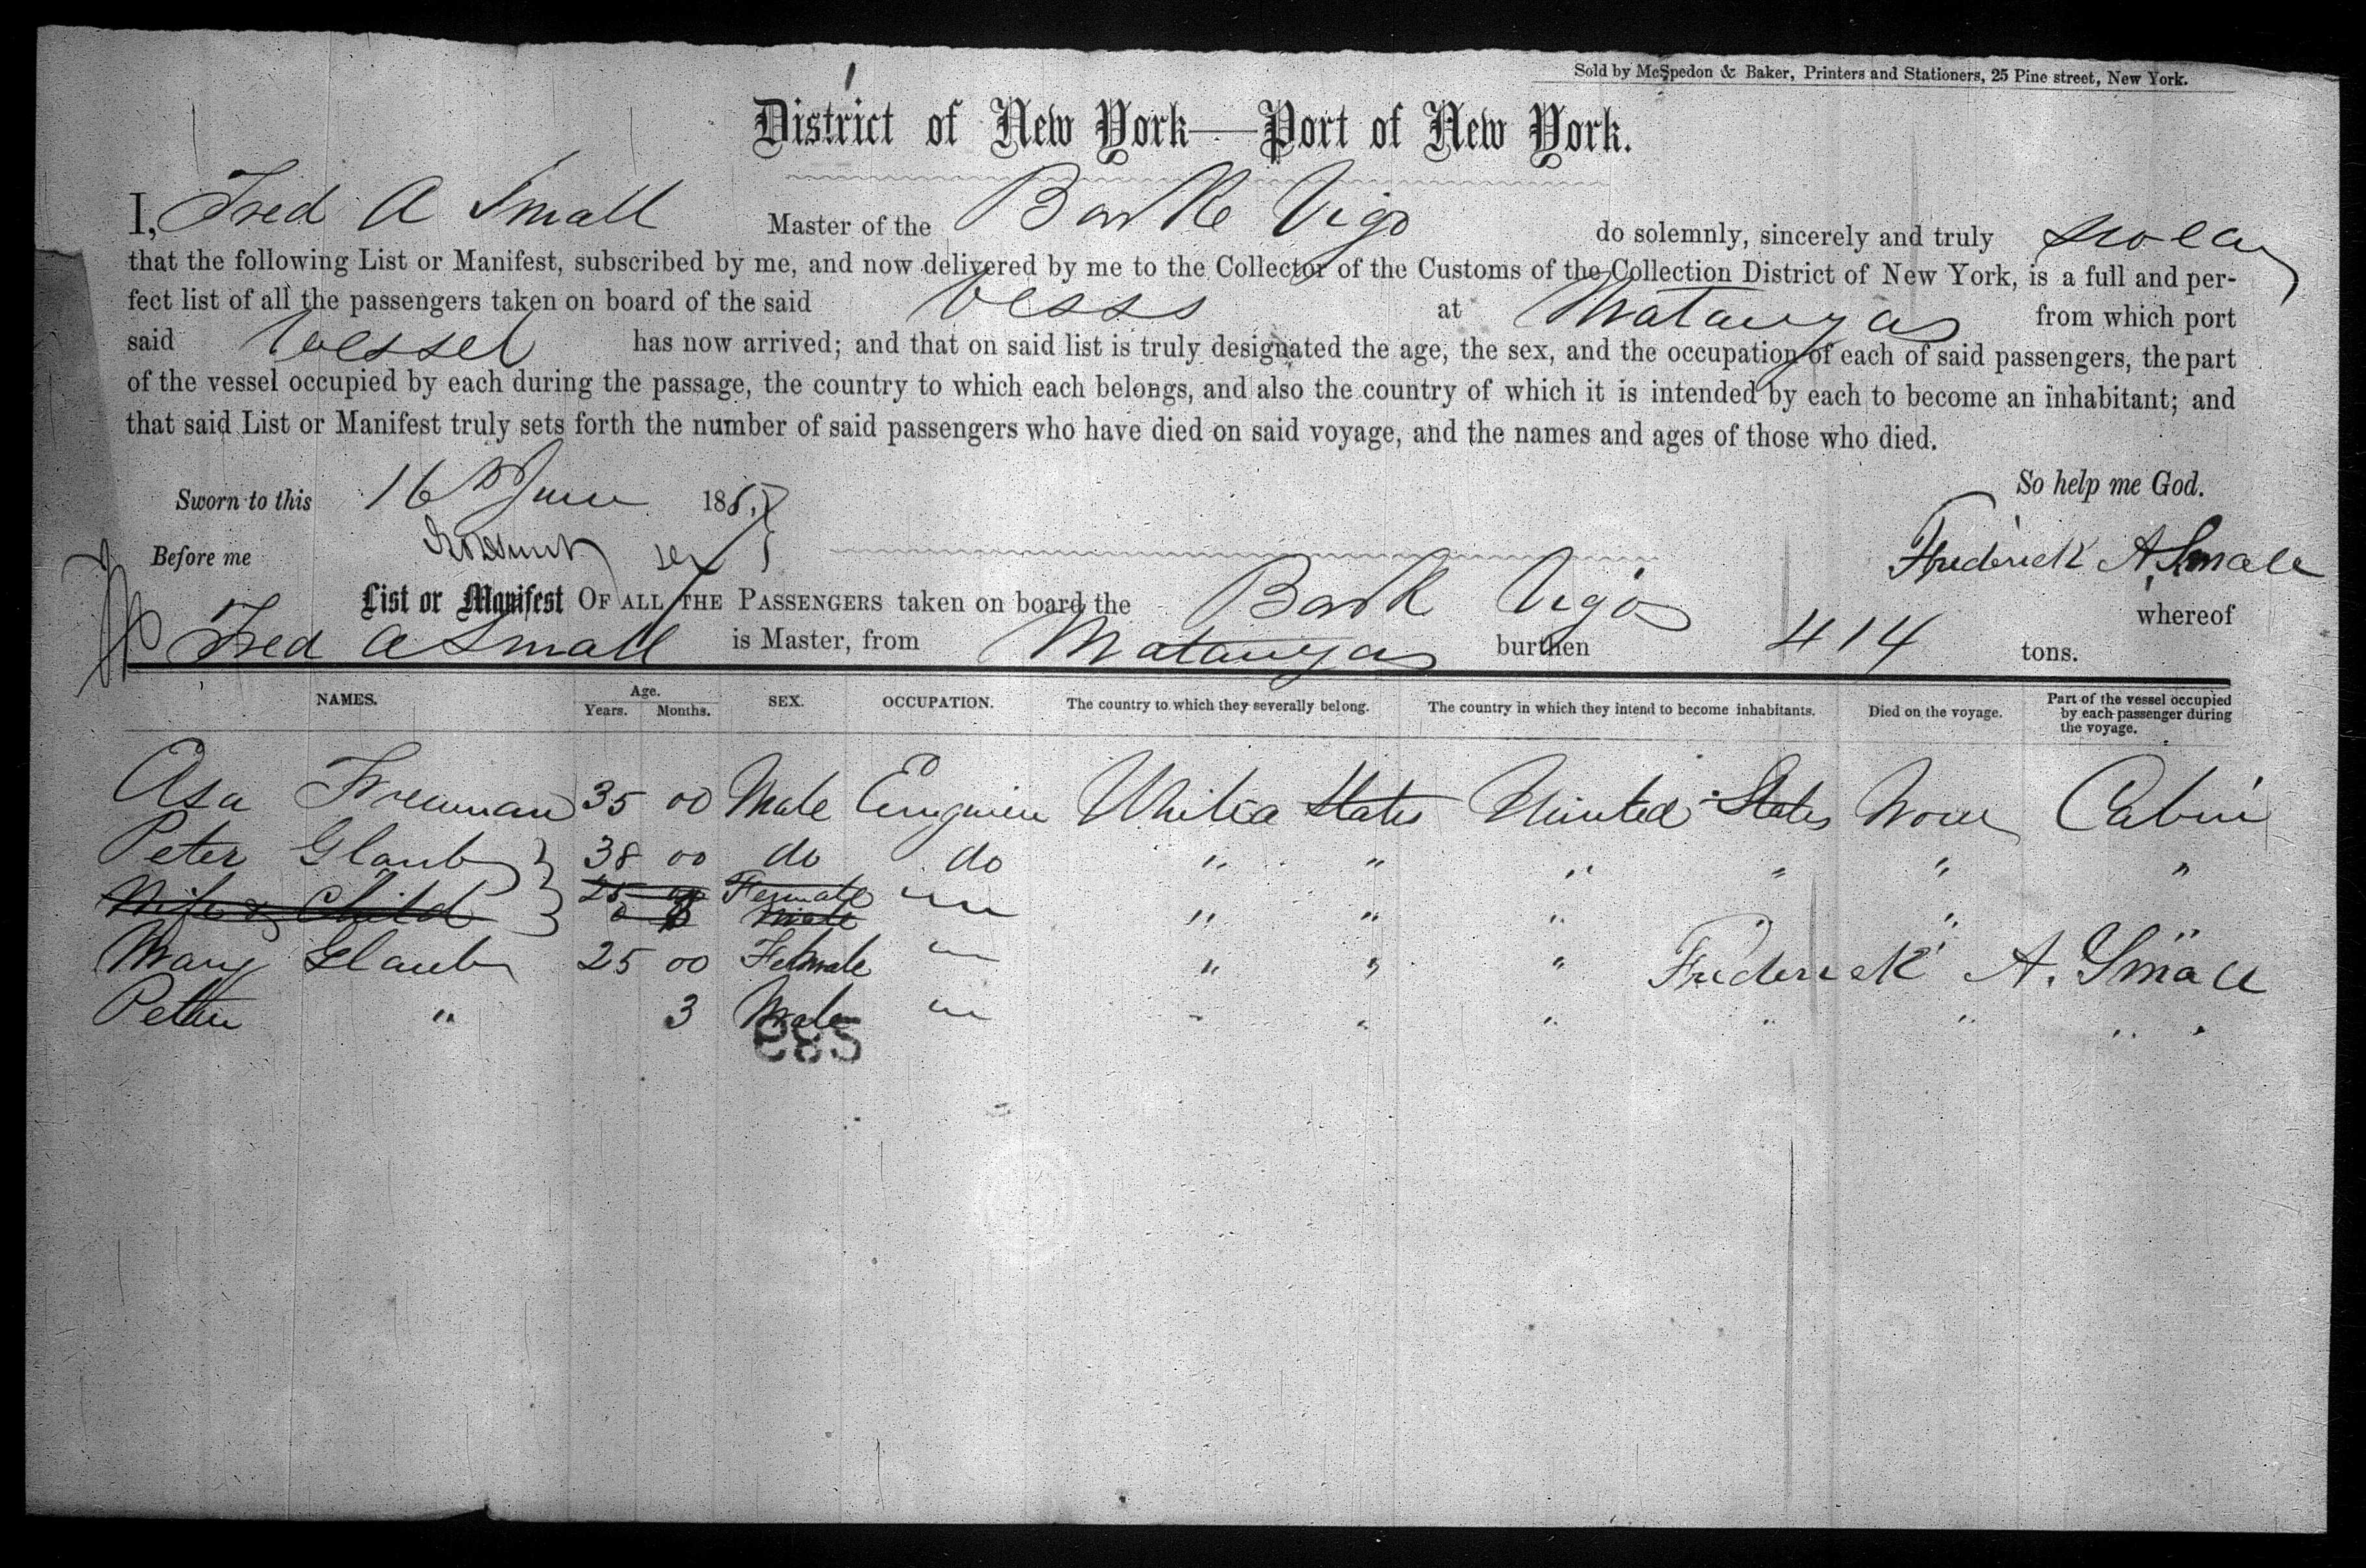 Sold by McSpedon & Baker, Printers and Stationers, 25 Pine street, New York.
District of New York—Port of New York.
I, Fred A Small Master of the Barke Vigo do solemnly, sincerely and truly swear
that the following List or Manifest, subscribed by me, and now delivered by me to the Collector of the Customs of the Collection District of New York, is a full and per-
fect list of all the passengers taken on board of the said at Matanzas from which port
said Vessel has now arrived; and that on said list is truly designated the age, the sex, and the occupation of each of said passengers, the part
of the vessel occupied by each during the passage, the country to which each belongs, and also the country of which it is intended by each to become an inhabitant; and
that said List or Manifest truly sets forth the number of said passengers who have died on said voyage, and the names and ages of those who died.
So help me God.
Sworn to this 16th June 185
Before me
Frederick A. Small
List or Manifest OF ALL THE PASSENGERS taken on board the Bark Vigo whereof
Fred A Small is Master, from Matanzas burthen 414 tons.
NAMES. Age. Years. Months. SEX. OCCUPATION. The country to which they severally belong. The country in which they intend to become inhabitants. Died on the voyage. Part of the vessel occupied by each passenger during the voyage.
Asa Freeman 35 00 Male United States United States None Cabin
Peter Glaub 38 00 do do " " " " " "
Wife & Child 25 00 Female Male " " " "
Mary Glaub 25 00 Female " " " Frederick A. Small
Peter " 3 Male " " " " " " "
583